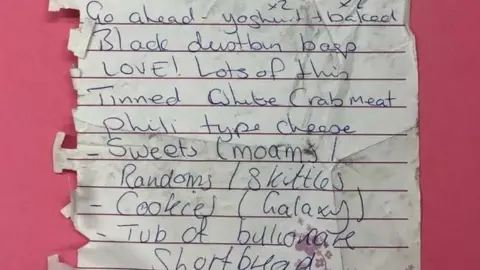 x2 x2
Go ahead - yoghurt + baked
Black dustbin bags
LOVE! Lots of this
Tinned White Crab Meat
phili type cheese
- Sweets (moams /
Randoms / Skittles
- Cookies (Galaxy)
- Tub of billionare
Shortbread